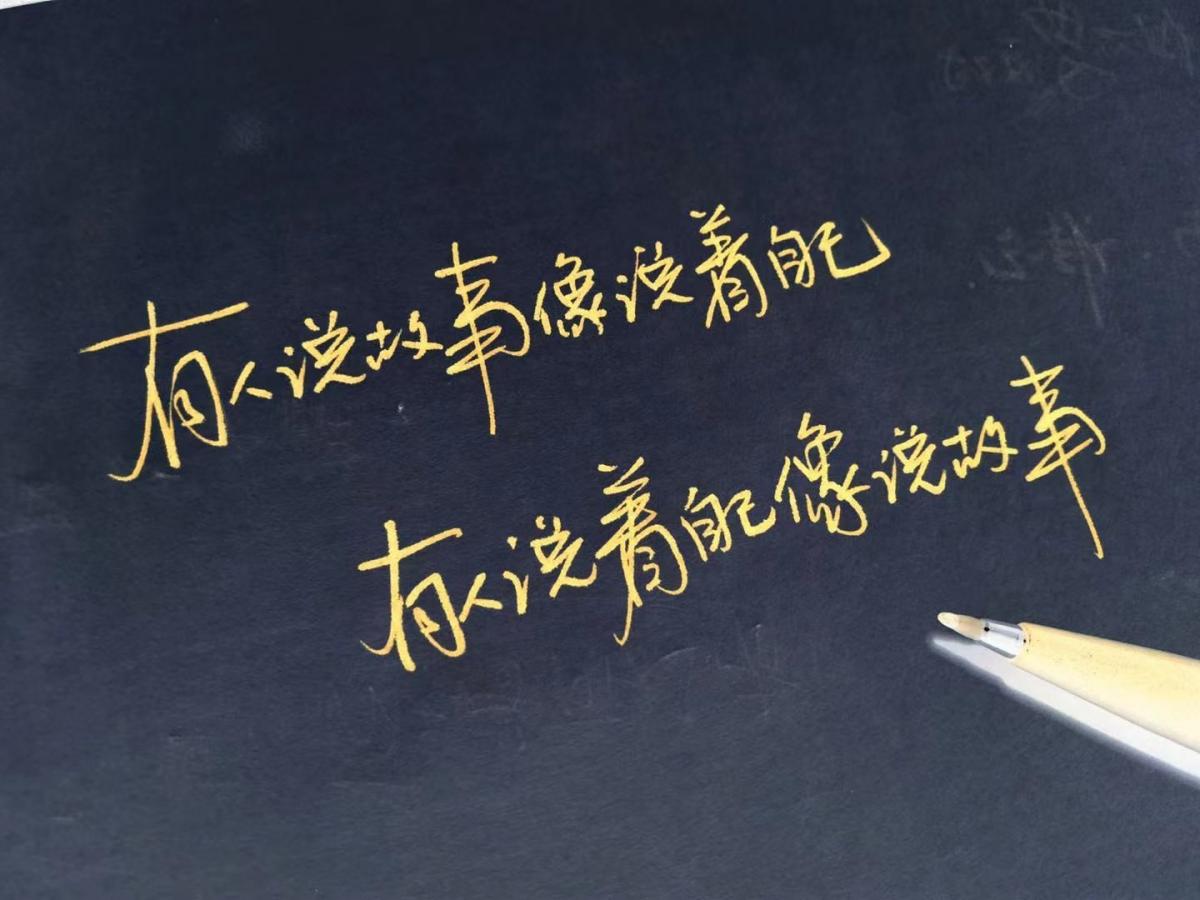 有人说故事像说着自己
有人说着自己像说故事